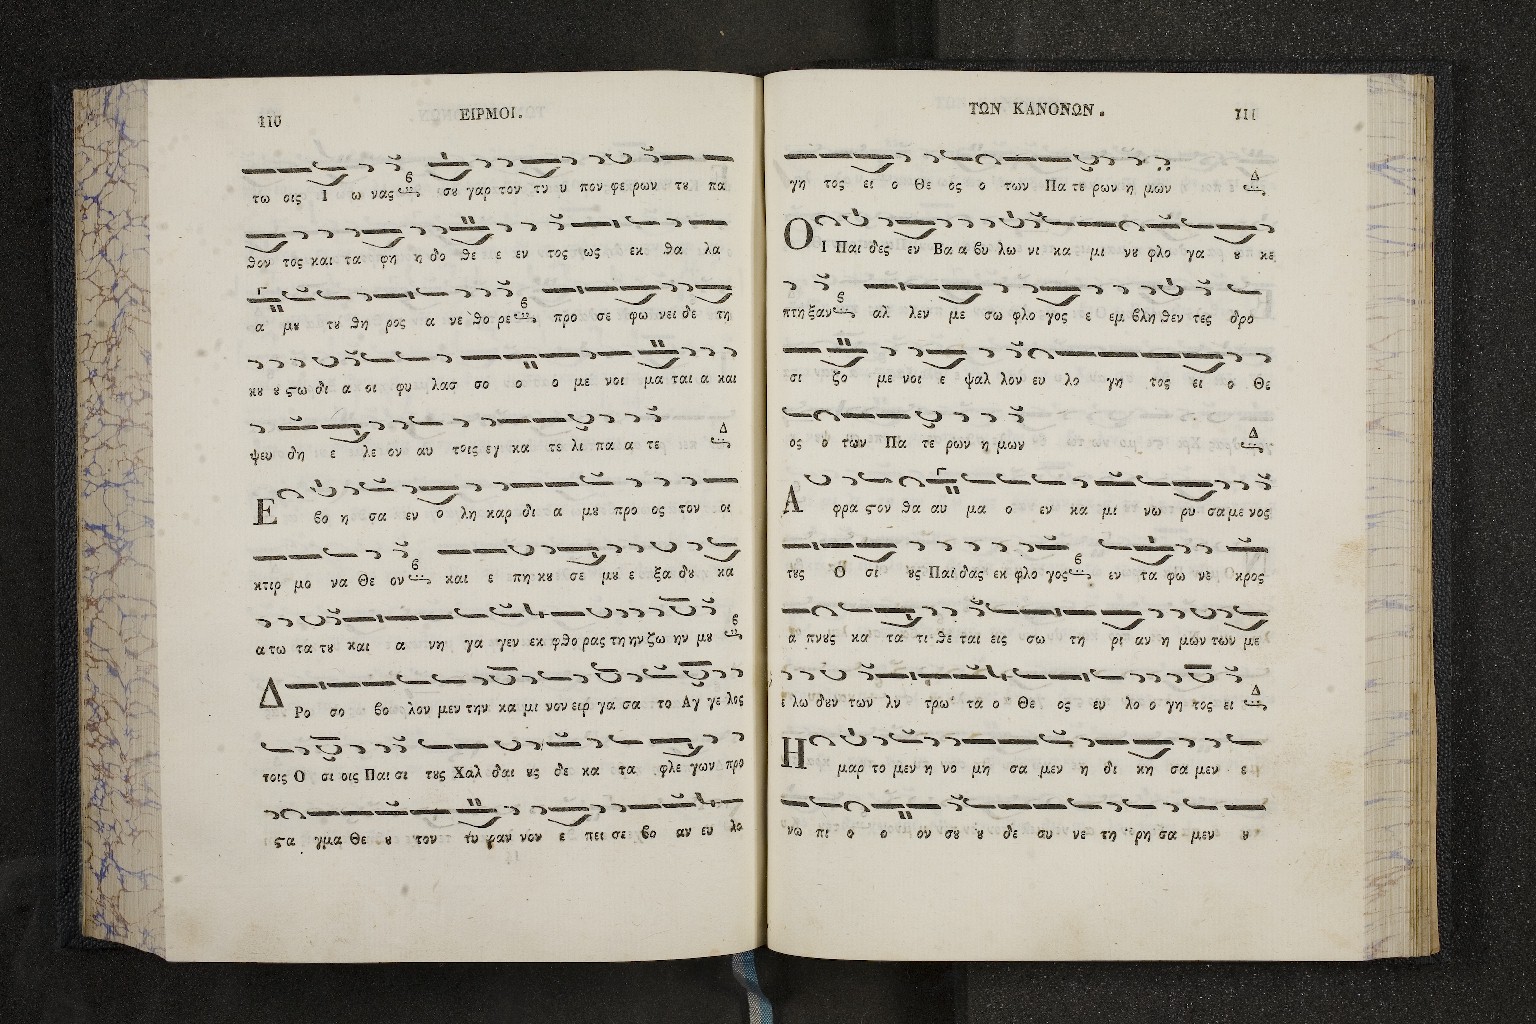 110 ΕΙΡΜΟΙ.
τω οις Ι ω νας ϐ σȣ γαρ τον τυ υ πον φε ρων τȣ πα
θον τος και τα φη η δο θε ε εν τος ως εκ θα λα
α μȣ τȣ θη ρος α νε θο ρε ϐ προ σε φω νει δε τη
κȣ ȣ ϛω δι α οι φυ λασ σο ο ο με νοι μα ται α και
ψευ δη ε λε ον αυ τοις εγ κα τε λι πα α τε Δ
Ε ϐο η σα εν ο λη καρ δι α μȣ προ ος τον οι
κτιρ μο να Θε ον ϐ και ε πη κȣ σε μȣ ε ξα δȣ κα
α τω τα τȣ και α νη γα γεν εκ φθο ρας τη ην ζω ην μȣ ϐ
Δ Ρο σο ϐο λον μεν την κα μι νον ειρ γα σα το Αγ γε λος
τοις Ο σι οις Παι σι τȣς Χαλ δαι ȣς δε κα τα φλε γων προ
ϛα γμα Θε ȣ τον τυ ραν νον ε πει σε ϐο αν ευ λο
ΤΩΝ ΚΑΝΟΝΩΝ. 111
γη τος ει ο Θε ος ο των Πα τε ρων η μων Δ
Ο Ι Παι δες εν Βα α ϐυ λω νι κα μι νȣ φλο γα ȣ κε
πτη ξαν ϐ αλ λεν με σω φλο γος ε εμ ϐλη θεν τες δρο
σι ζο με νοι ε ψαλ λον ευ λο γη τος ει ο Θε
ος ο των Πα τε ρων η μων Δ
Α φρα ϛον θα αυ μα ο εν κα μι νω ρυ σα με νος
τȣς Ο σι ȣς Παι δας εκ φλο γος ϐ εν τα φω νε κρος
α πνȣς κα τα τι θε ται εις σω τη ρι αν η μων των με
ε λω δȣν των λυ τρω τα ο Θε ος ευ λο ο γη τος ει Δ
Η μαρ το μεν η νο μη σα μεν η δι κη σα μεν ε
νω πι ο ο ον σȣ ȣ δε συ νε τη ρη σα μεν ȣ